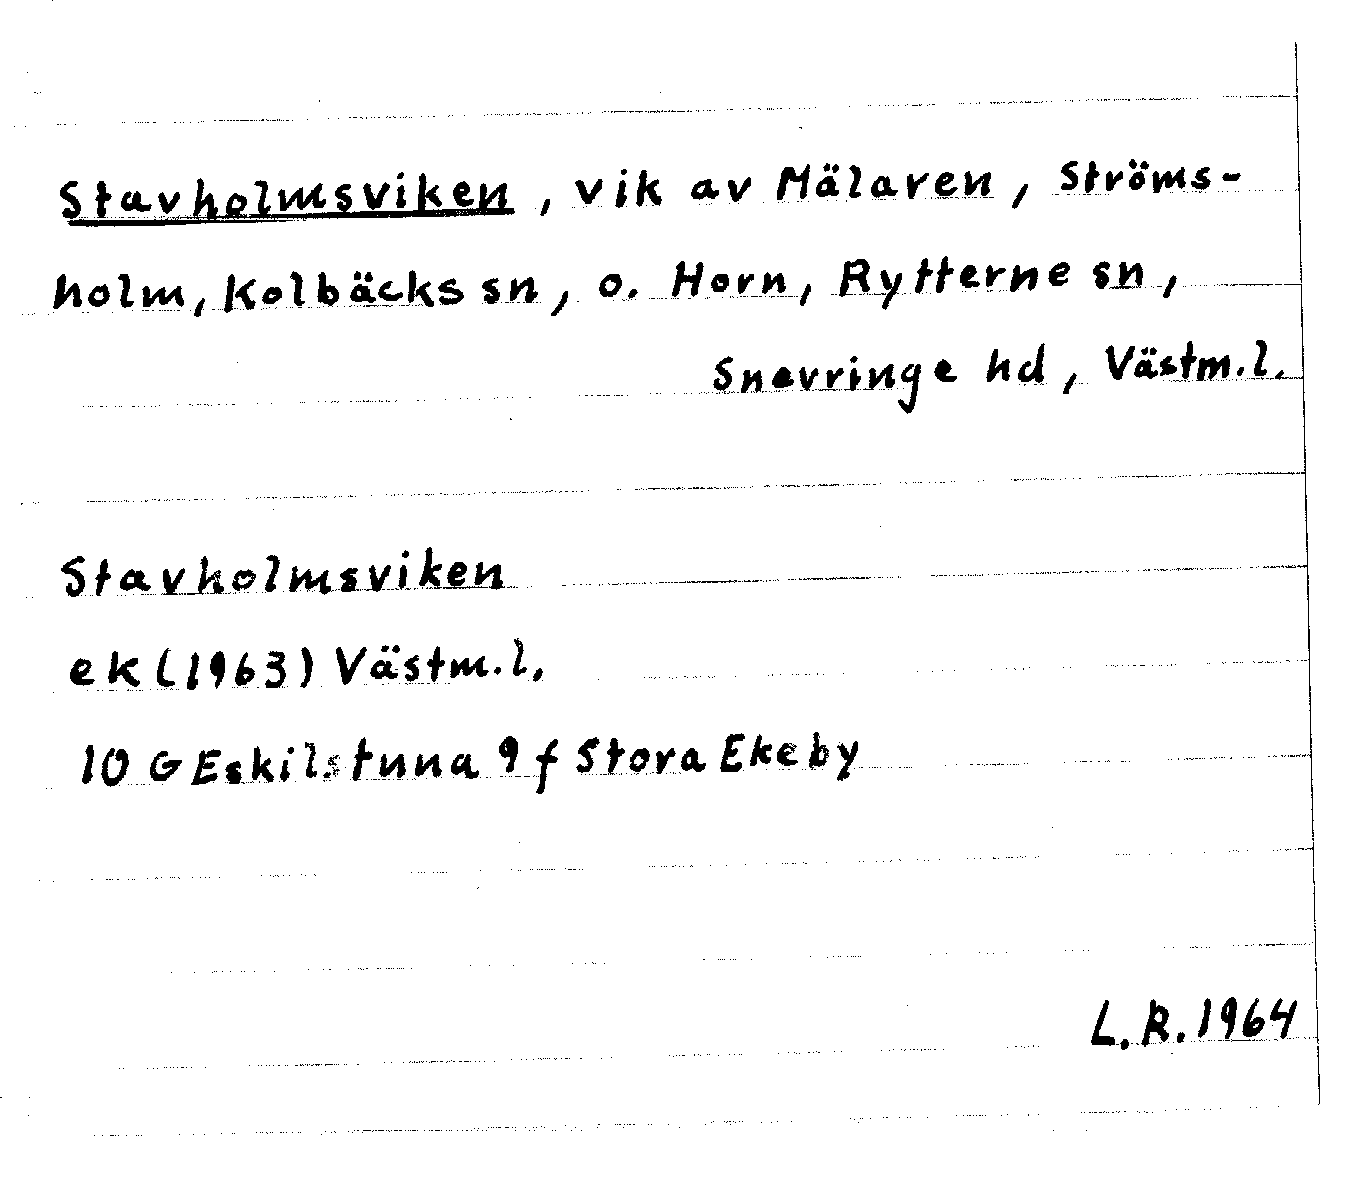 Stavholmsviken, vik av Mälaren, Ströms-
holm, Kolbäcks sn, o. Horn, Rytterne sn,
Snevringe hd, Västm.l.
Stavholmsviken
ek (1963) Västm.l.
10 G Eskilstuna 9 f Stora Ekeby
L.R. 1964